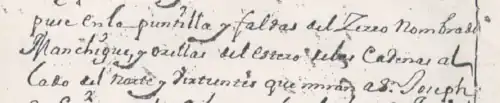 puse en la puntilla y faldas del Zerro Nombrado
Manchigue, y orillas del estero de las Cadenas al
lado del Norte y Vertientes que miran a Sn. Joseph